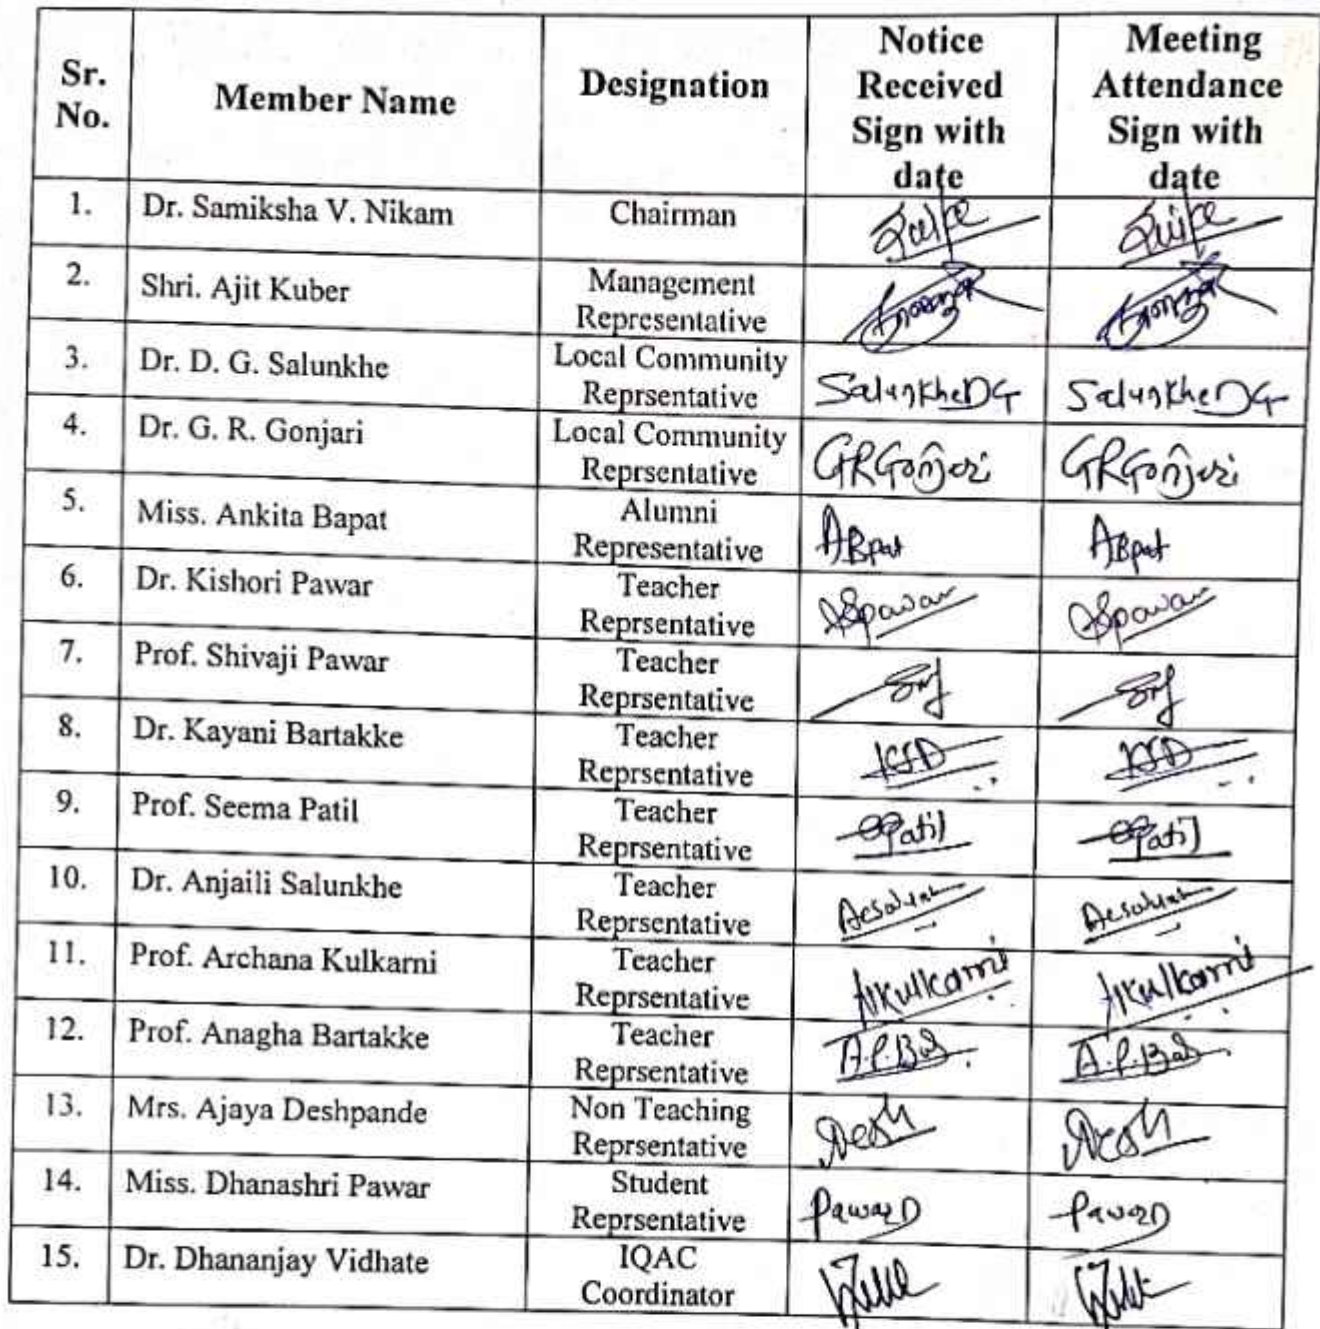 Sr. No.
Member Name
Designation
Notice Received Sign with date
Meeting Attendance Sign with date
1. Dr. Samiksha V. Nikam Chairman
2. Shri. Ajit Kuber Management Representative
3. Dr. D. G. Salunkhe Local Community Reprsentative SalunkheDG SalunkheDG
4. Dr. G. R. Gonjari Local Community Reprsentative GRGonjari GRGonjari
5. Miss. Ankita Bapat Alumni Representative ABpat ABpat
6. Dr. Kishori Pawar Teacher Reprsentative
7. Prof. Shivaji Pawar Teacher Reprsentative
8. Dr. Kayani Bartakke Teacher Reprsentative
9. Prof. Seema Patil Teacher Reprsentative
10. Dr. Anjaili Salunkhe Teacher Reprsentative
11. Prof. Archana Kulkarni Teacher Reprsentative
12. Prof. Anagha Bartakke Teacher Reprsentative
13. Mrs. Ajaya Deshpande Non Teaching Reprsentative
14. Miss. Dhanashri Pawar Student Reprsentative PawarD PawarD
15. Dr. Dhananjay Vidhate IQAC Coordinator